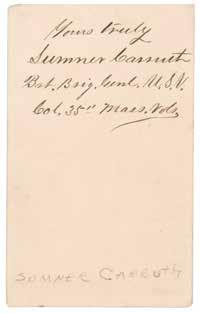 Yours truly
Sumner Carruth
Bvt. Brig. Genl. U.S.V.
Col. 35th Mass. Vols.
SUMNER CARRUTH